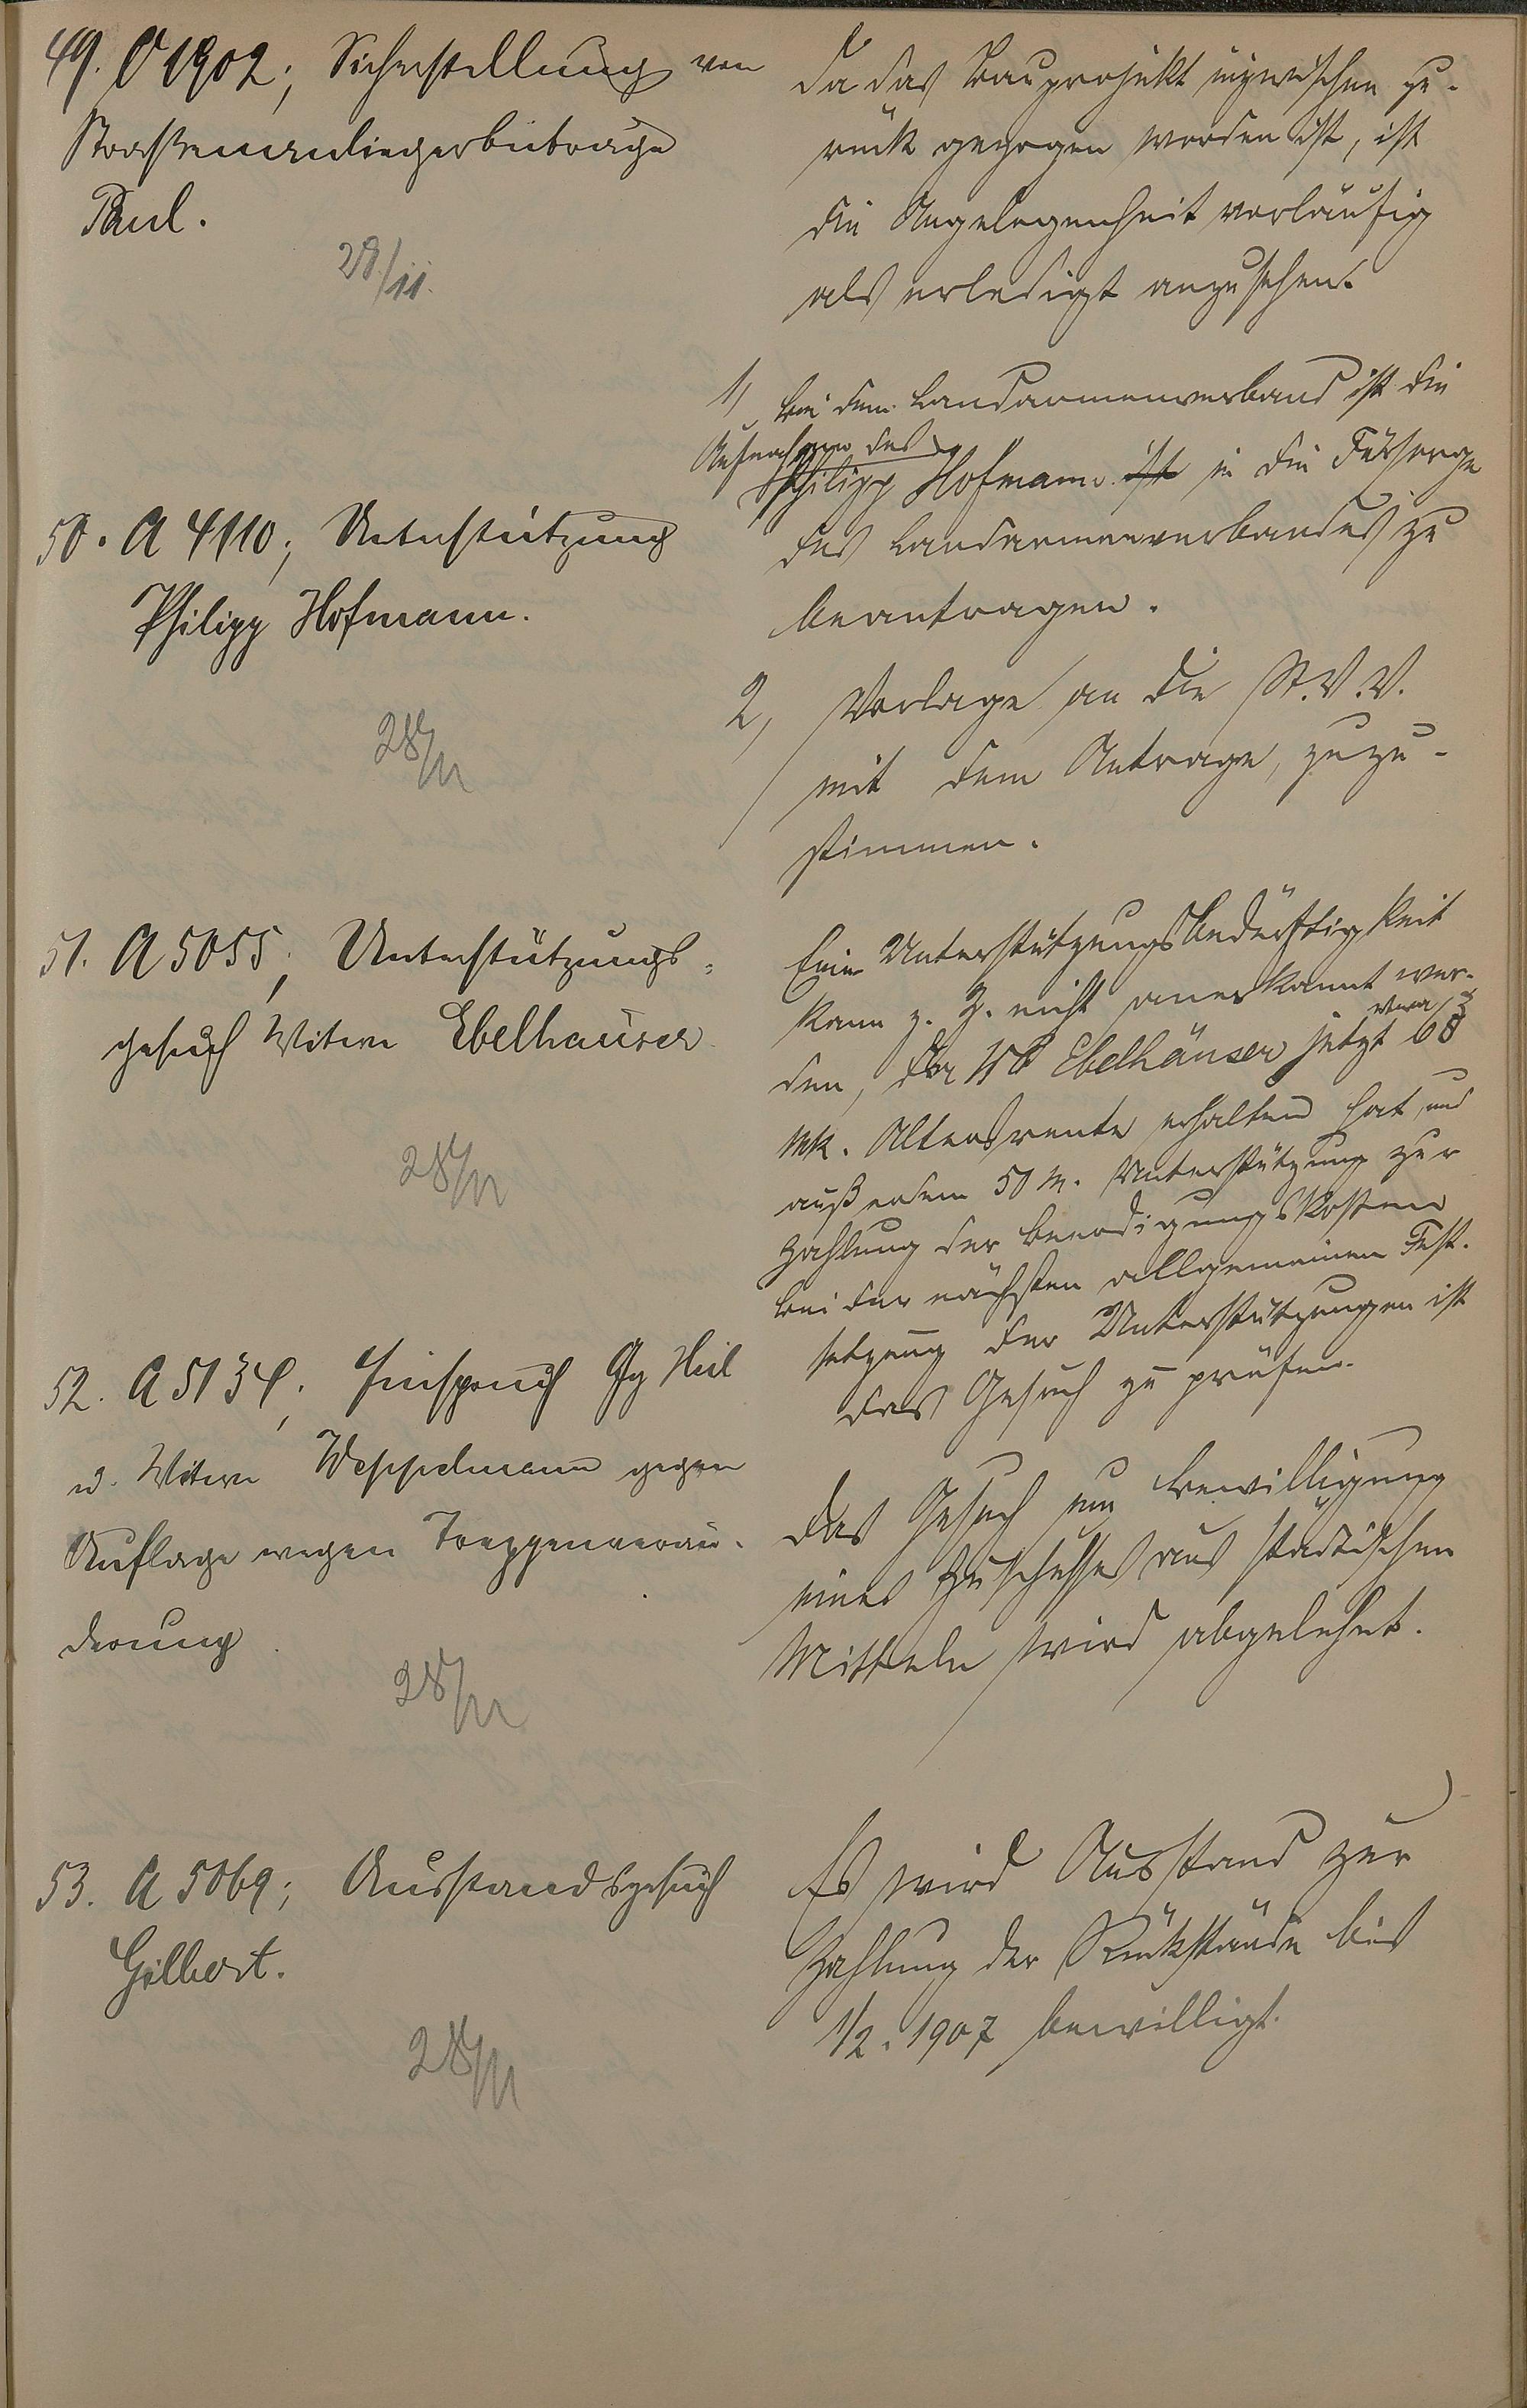 49. O 1902; Sicherstellung von
Straßenanliegerbeiträge
Paul.
28/11.
Da das Bauprojekt inzwischen zu-
rück gezogen worden ist, ist
die Angelegenheit vorläufig
als erledigt anzusehen.
50. A 4110; Unterstützung
Philipp Hofmann.
28/11
1, Bei dem Landarmenverband ist die
Aufnahme des
Philipp Hofmann ist in die Fürsorge
des Landarmenverbandes zu
beantragen.
2, Vorlage an die St.V.V.
mit dem Antrage, zuzu-
stimmen.
51. A 5055; Unterstützungs-
gesuch Witwe Ebelhäuser
28/11
Eine Unterstützungsbedürftigkeit
kann z. Z. nicht anerkannt wer-
den, da W Ebelhäuser jetzt 68
Mk. Altersrente erhalten hat und
außerdem 50 M. Unterstützung zur
Zahlung der Beerdigungskosten
Bei der nächsten allgemeinen Fest-
setzung der Unterstützungen ist
das Gesuch zu prüfen.
52. A 5134; Einspruch Gg Heil
u. Witwe Weppelmann gegen
Auflage wegen Treppenverän-
derung
28/11
Das Gesuch um Bewilligung
eines Zuschusses aus städtischen
Mitteln wird abgelehnt.
53. A 5069; Ausstandsgesuch
Gilbert.
28/11
Es wird Ausstand zur
Zahlung der Rückstände bis
1/2. 1907 bewilligt.